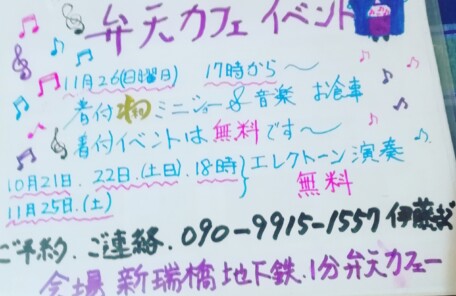 弁天カフェ イベント
11月26(日曜日) 17時から〜
着付 ミニショー& 音楽 お食事
着付イベントは無料です〜
10月21日. 22日.(土日). 18時 } エレクトーン演奏
11月25日.(土) 無料
ご予約. ご連絡. 090-9915-1557 伊藤まで
会場 新瑞橋地下鉄. 1分 弁天カフェー